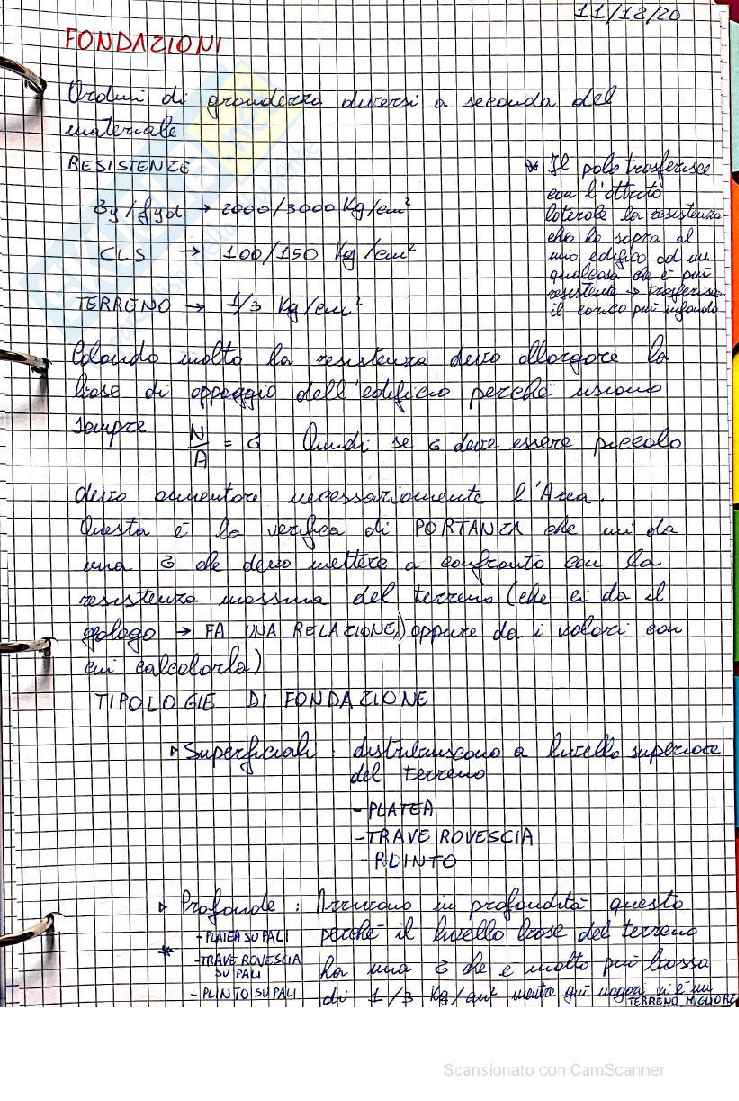 11/12/20
FONDAZIONI
Ordini di grandezza diversi a seconda del
materiale
RESISTENZE
fyd → 2000/3000 Kg/cm²
CLS → 100/150 Kg/cm²
TERRENO → 1/3 Kg/cm²
* Il palo trasferisce
con l'attrito
laterale la resistenza
che ho sopra al
mio edificio ad un
qualcosa che è più
resistente → trasferisce
il carico più infondo
Calando molto la resistenza devo allargare la
base di appoggio dell'edificio perché usiamo
sempre N/A = σ Quindi se σ deve essere piccolo
devo aumentare necessariamente l'Area.
Questa è la verifica di PORTANZA che mi da
una σ che devo mettere a confronto con la
resistenza massima del terreno (che ci da il
geologo → FA UNA RELAZIONE,) oppure da i valori con
cui calcolarla)
TIPOLOGIE DI FONDAZIONE
Superficiali : distribuiscono a livello superiore
del terreno
- PLATEA
- TRAVE ROVESCIA
- PLINTO
Profonde : Arrivano in profondità questo
perché il livello base del terreno
ha una σ che è molto più bassa
di 1/3 Kg/cm² mentre più vi è un
TERRENO MIGLIORE
*
- PLATEA SU PALI
- TRAVE ROVESCIA
SU PALI
- PLINTO SU PALI
Scansionato con CamScanner